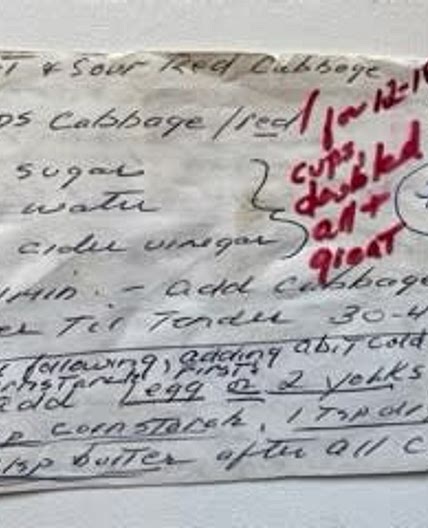 & Sour Red Cabbage
Cabbage/red
sugar
water
cider vinegar
for 12-1
cups,
doubled
all +
great
min. - add cabbage
Til Tender 30-4
following, adding a bit cold
cornstarch first,
add 1 egg or 2 yolks
cornstarch, 1 Tsp dr
butter after all c